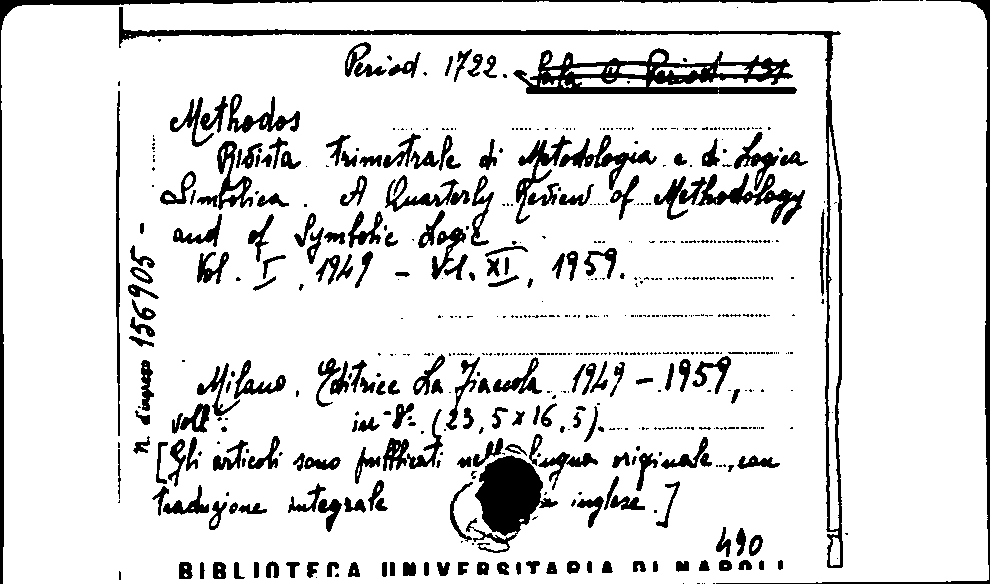 Period. 1722. Sala O. Period. 131
Methodos
Rivista trimestrale di Metodologia e di Logica
Simbolica. A Quarterly Review of Methodology
and of Symbolic Logic
Vol. I, 1949 – Vol. XI, 1959.
N. d'ingresso 156905 -
Milano, Editrice La Fiaccola, 1949 – 1959,
voll. in-8° (23,5 x 16,5).
[Gli articoli sono pubblicati nella lingua originale, con
traduzione integrale inglese.]
490
BIBLIOTECA UNIVERSITARIA DI NAPOLI